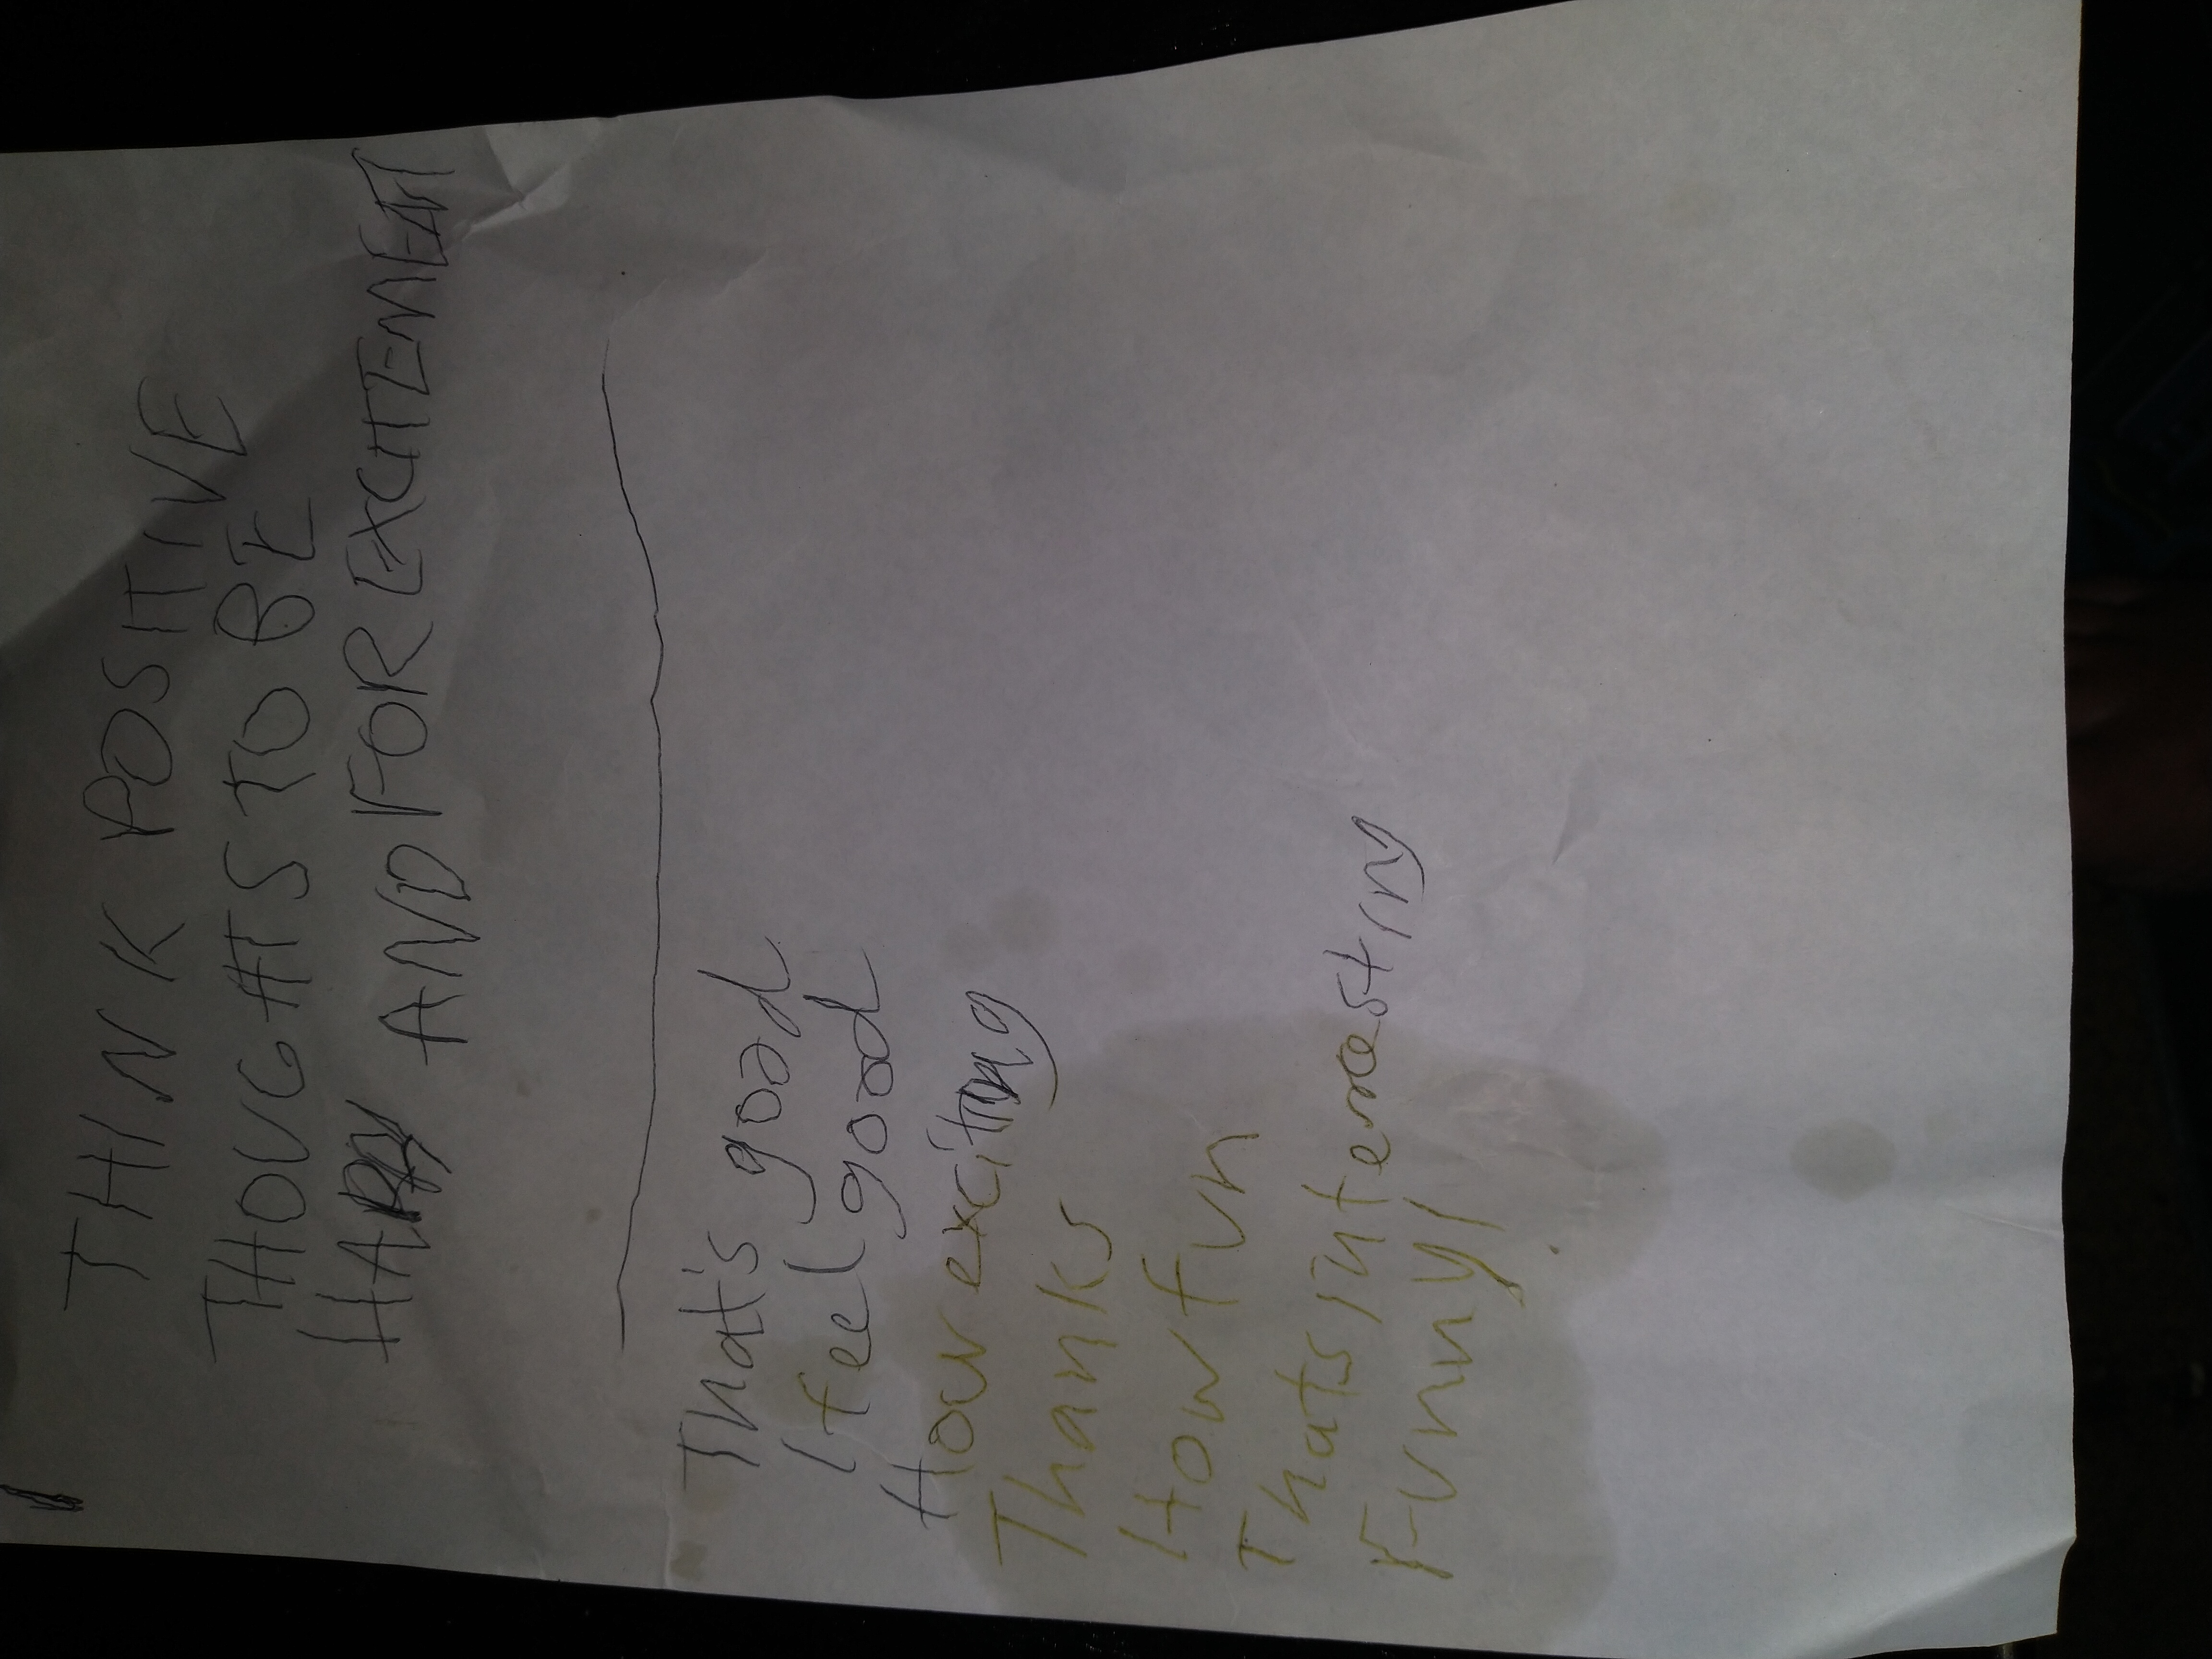 THINK POSITIVE
THOUGHTS TO BE
AND FOR EXCITEMENT
That's good
I feel good
How exciting
Thanks
How fun
Thats interesting
Funny!